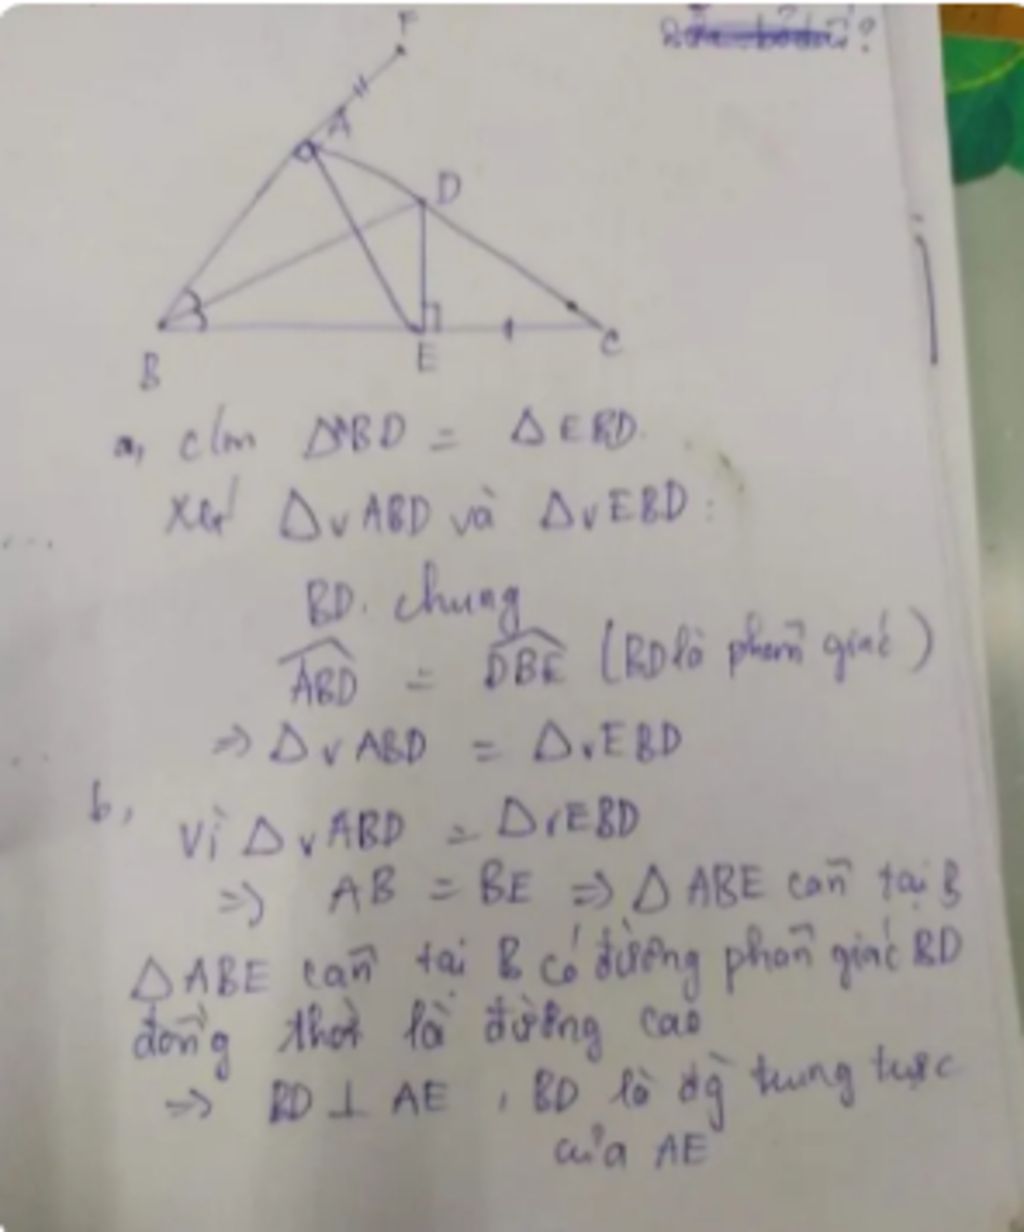 F
A
D
B
E
C
a, c/m ΔABD = ΔEBD.
Xét Δv ABD và Δv EBD:
BD. chung
\widehat{ABD} = \widehat{DBE} (BD là phân giác)
=> Δv ABD = Δv EBD
b,
Vì Δv ABD = Δv EBD
=> AB = BE => Δ ABE cân tại B
Δ ABE cân tại B có đường phân giác BD
đồng thời là đường cao
=> BD ⊥ AE , BD là đg trung trực
của AE